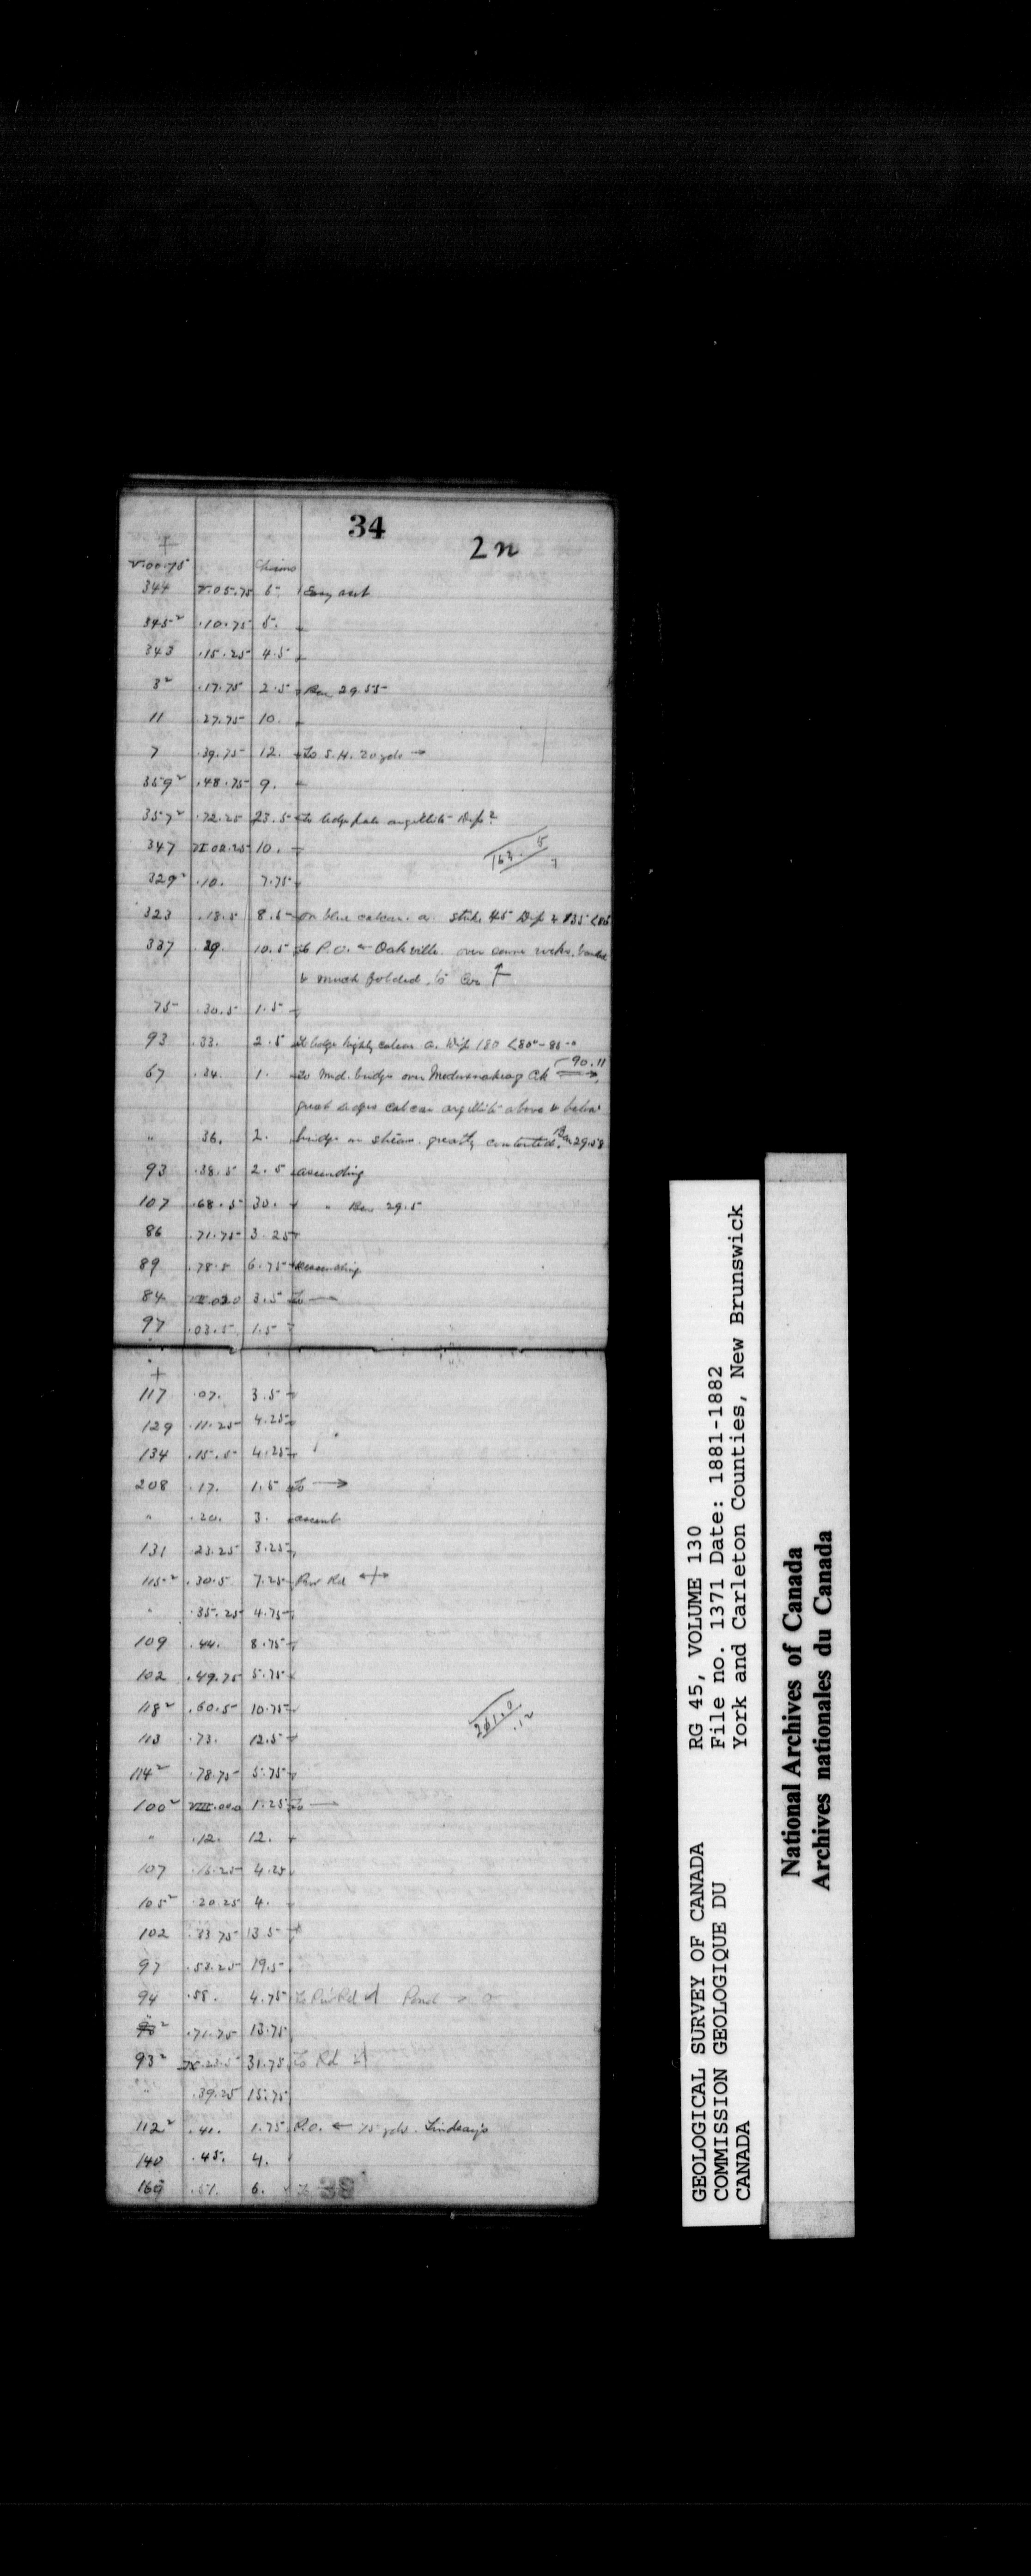 34
2n
+
V.00.75 Chains
344 V.05.75 5.
345² .10.75 5.
343 .15.25 4.5
3² .17.75 2.5 Bar 29.55
11 .27.75 10.
7 .39.75 12. to S.H. 20 yds →
359² .48.75 9.
357² .72.25 23.5 to ledge pale argillite Dip?
347 VI 02.25 10.
163. 5
329² .10. 7.75
323 .18.5 8.5 on blue calcar. a. strike 45 Dip
337 .29. 10.5 to P.O. ← Oakville. over same rocks.
& much folded. to Cor ↑
75 .30.5 1.5
93 .33. 2.5 to ledge highly calcar a. Dip 180 <80°-85°
67 .34. 1. to Mid. bridge over Meduxnakeag Ck → 90.11
great ledges calcar argillite above & below
" 36. 2. bridge on stream. greatly contorted. Bar 29.58
93 .38.5 2.5 ascending
107 .68.5 30. " Bar 29.5
86 .71.75 3.25
89 .78.5 6.75
84 VII.020 3.5 to —
97 .03.5 1.5
+
117 .07. 3.5
129 .11.25 4.25
134 .15.5 4.25
208 .17. 1.5 to →
" .20. 3. ascent
131 .23.25 3.25
115² .30.5 7.25 Priv Rd ↔
" .35.25 4.75
109 .44. 8.75
102 .49.75 5.75
118² .60.5 10.75
261.0
.12
113 .73. 12.5
114² .78.75 5.75
100² VIII.000 1.25 to —
" .12. 12.
107 .16.25 4.25
105² .20.25 4.
102 .33.75 13.5
97 .53.25 19.5
94 .58. 4.75 to Priv Rd
93² .71.75 13.75
93² IX.23.5 31.75 to Rd
" .39.25 15.75
112² .41. 1.75 P.O. ← 75 yds. Lindsay's
140 .45. 4.
169 .51. 6. to
GEOLOGICAL SURVEY OF CANADA RG 45, VOLUME 130
COMMISSION GEOLOGIQUE DU File no. 1371 Date: 1881-1882
CANADA York and Carleton Counties, New Brunswick
National Archives of Canada
Archives nationales du Canada